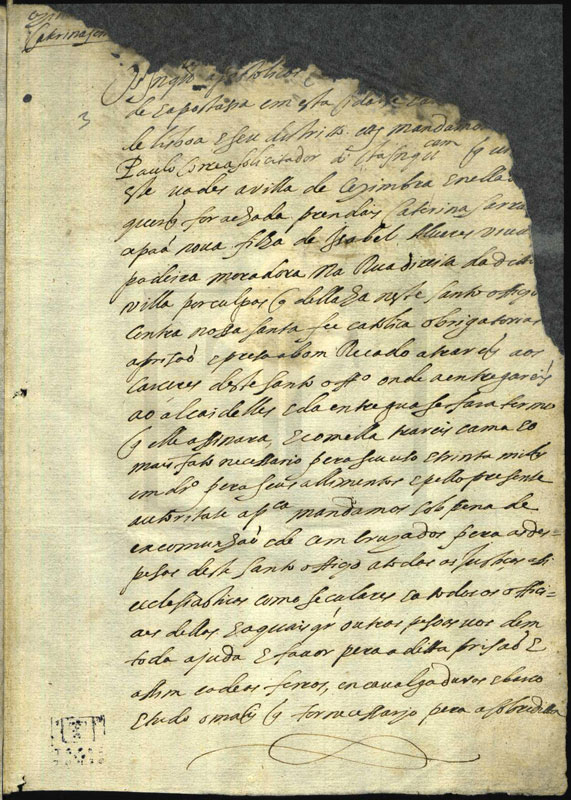 Caterina
3
Os Inq.res apostolicos
de e apostasia em esta cidade
de lisboa e seu districto. etc mandamos
Paulo Correa solicitador da S.ta Inq.am
este vades a villa de Cezimbra e nella
quer q for achada prendais Caterina
nova filha de Isabel Alvares viuva
padeira moradora Na Rua direita da ditta
villa por culpas q della ha neste santo officio
Contra nossa santa fee catolica obrigatorias
a prisaõ e presa a bom Recado a trareis aos
Carceres deste santo off.o onde a entregareis
ao alcaide delles e da entregua se fara termo
q elle assinara, e com ella trareis cama e o
mais fato necessario pera seu uso e trinta mil rs
em dr.o pera seus alimentos e pello presente
autoritate ap.ca mandamos sob pena de
excomunhaõ e de cem cruzados pera as des-
pesas deste santo officio a todas as Justiças assi
ecclesiasticas como seculares e a todos os offici-
aes dellas e a quaisqr outras pesoas vos dem
toda ajuda e favor pera a ditta prisaõ e
assim cadeas ferros, encavalgaduras e barco
e tudo o mais q for necessario pera a sobreditta